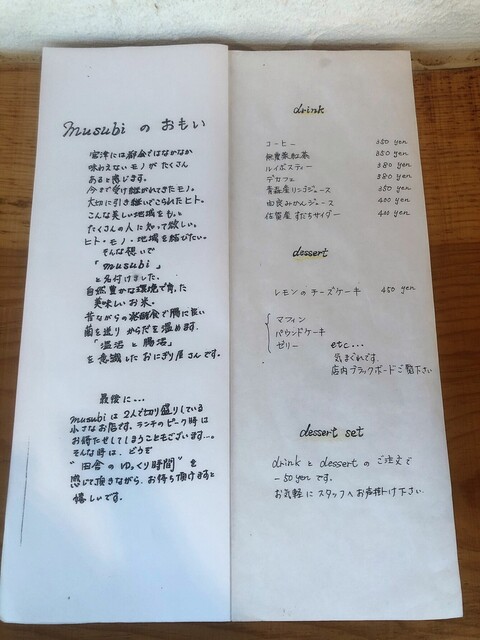 musubi の おもい
宮津には都会ではなかなか
味わえないモノがたくさん
あると感じます。
今まで受け継がれてきたモノ。
大切に引き継いでこられたヒト。
こんな美しい地域をもっと
たくさんの人に知って欲しい。
ヒト・モノ・地域を結びたい。
そんな想いで
「musubi」
と名付けました。
自然豊かな環境で育った
美味しいお米。
昔ながらの発酵食で腸に良い
菌を送り からだを温めます。
「温活と腸活」
を意識した おにぎり屋さんです。
最後に…
musubiは2人で切り盛りしている
小さなお店です。ランチのピーク時は
お待たせしてしまうこともございます…。
そんな時は、どうぞ
"田舎のゆっくり時間"を
感じて頂きながら、お待ち頂けますと
嬉しいです。
drink
コーヒー 350 yen
無農薬紅茶 350 yen
ルイボスティー 380 yen
デカフェ 380 yen
青森産リンゴジュース 350 yen
由良みかんジュース 400 yen
佐賀屋 すだちサイダー 400 yen
dessert
レモンの チーズケーキ 450 yen
マフィン
パウンドケーキ
ゼリー etc...
気まぐれです。
店内ブラックボードご覧下さい
dessert set
drink と dessert の ご注文で
-50 yen です。
お気軽に スタッフへ お声掛け下さい